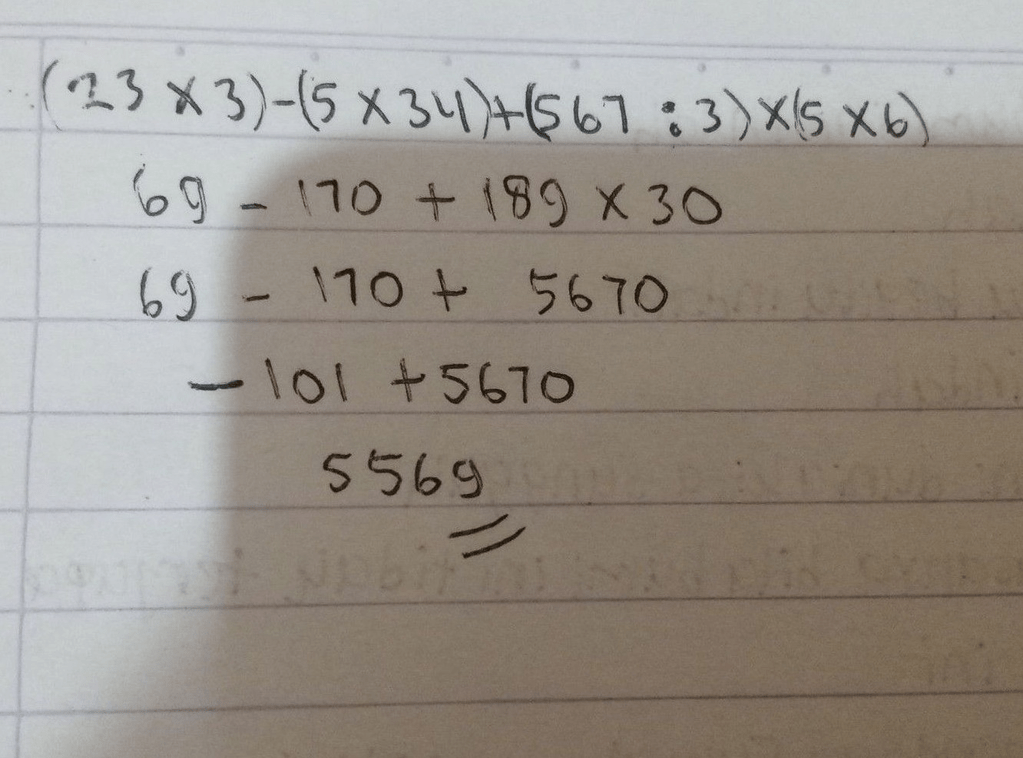 (23 × 3)-(5 × 34)+(567 : 3)×(5 ×6)
69 - 170 + 189 × 30
69 - 170 + 5670
- 101 + 5670
5569